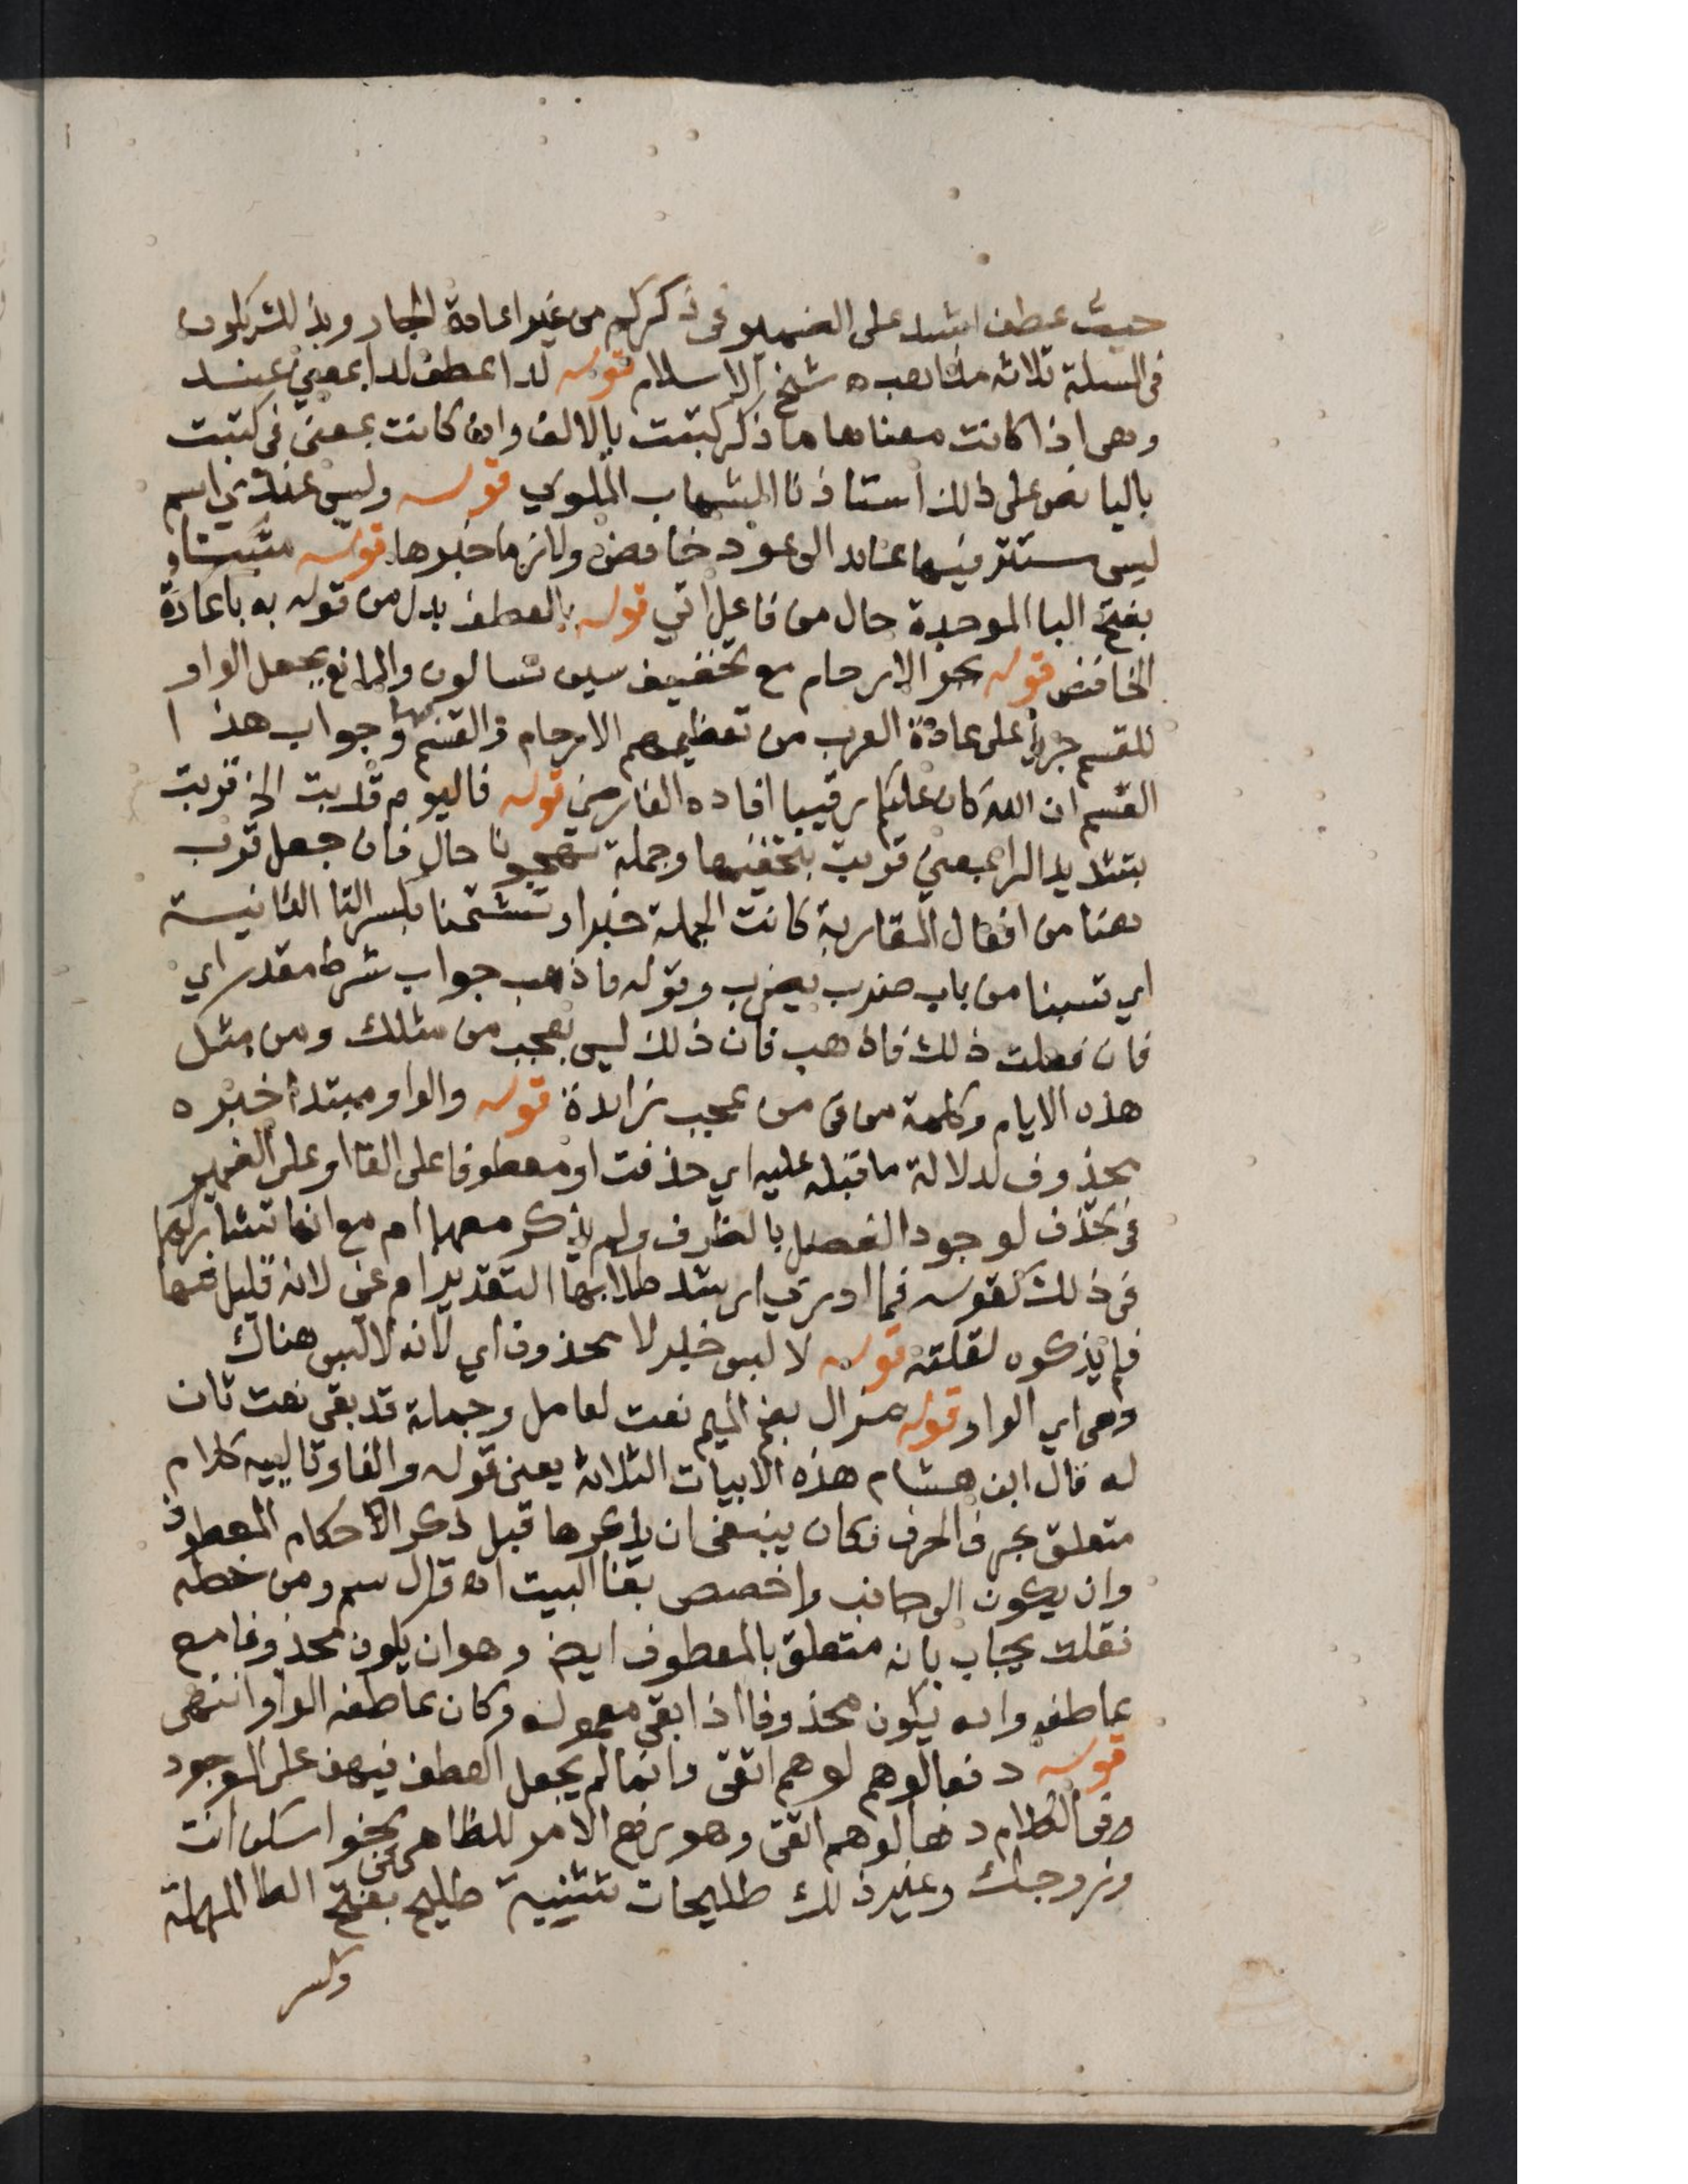 حيث عطف اشد على الضمير في ذكركم من غير اعادة الجار وبذلك يكون
في المسئلة ثلاثة مذاهب ه شيخ الاسلام قوله لدا عطف لدا بمعني عند
وهي اذا كانت معناها ما ذكر كتبت بالالف وان كانت بمعنى في كتبت
باليا نص على ذلك استاذنا الشهاب الملوي قوله وليس عندي اسم
ليس مستتر فيها عائد الى عود خافض ولازما خبرها قوله مثبتا
بفتح البا الموحدة حال من فاعل اتي قوله بالعطف بدل من قوله به باعادة
الخافض قوله نحو الارحام مع تخفيف سين تسالون والمانع يجعل الواو
للقسم جريا على عادة العرب من تعظيمهم الارحام والقسم بها وجواب هذا
القسم ان الله كان عليكم رقيبا افاده الفارضي قوله فاليوم قربت الخ قربت
بتشديد الرا بمعني قربت بتخفيفها وجملة تهجونا حال فان جعل قرب
هنا من افعال المقاربة كانت الجملة خبرا وتشتمنا بكسر التا الثانية
اي تسبنا من باب ضرب يضرب وقوله فاذهب جواب شرط مقدر اي
فان فعلت ذلك فاذهب فان ذلك ليس بعجب من مثلك ومن مثل
هذه الايام وكلمة من في من عجب زائدة قوله والواو مبتدا خبره
محذوف لدلالة ما قبله عليه اي حذفت او معطوفا على الفا او على الضمير
في تحذف لوجود الفصل بالظرف ولم يذكر معهما ام مع انها تشاركهما
في ذلك كقوله فما ادري ارشد طلابها التقدير ام غي لانه قليل فيها
فلم يذكره لقلته قوله لا لبس خبر لا محذوف اي لانه لا لبس هناك
وهي اي الواو قوله مزال بضم الميم نعت لعامل وجملة قد بقي نعت ثان
له قال ابن هشام هذه الابيات الثلاثة يعني قوله والفا وتالييه كلام
متعلق بحرف الحرف فكان ينبغي ان يذكرها قبل ذكر الاحكام المعطوف
وان يكون الى جانب واخصص بفا البيت اه قال سم ومن خطه
نقلت يجاب بانه متعلق بالمعطوف ايضا وهو ان يكون محذوفا مع
عاطفه وانه يكون محذوفا اذا بقي معموله وكان عاطفه الواو انتهى
قوله دفعا لوهم لوهم اتقي وانما لم يجعل العطف فيهن على الموجود
في الكلام دفعا لوهم اتقي وهو رفع الامر للظاهر في نحو اسكن انت
وزوجك وغير ذلك طليحان تثنية طليح بفتح الطا المهملة
وكسر